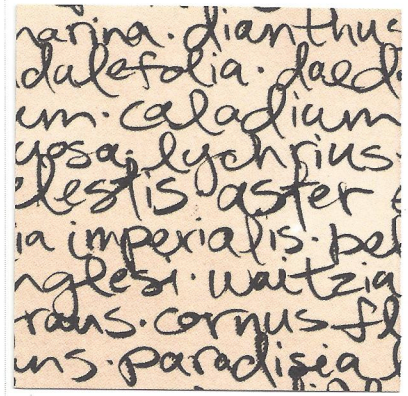 marina. dianthus
dalefolia. daed
um. caladium
yosa. lychrius.
elestis aster
ia imperialis. bel
nglesi. waitzia
rans. cornus fl
ns. paradisia